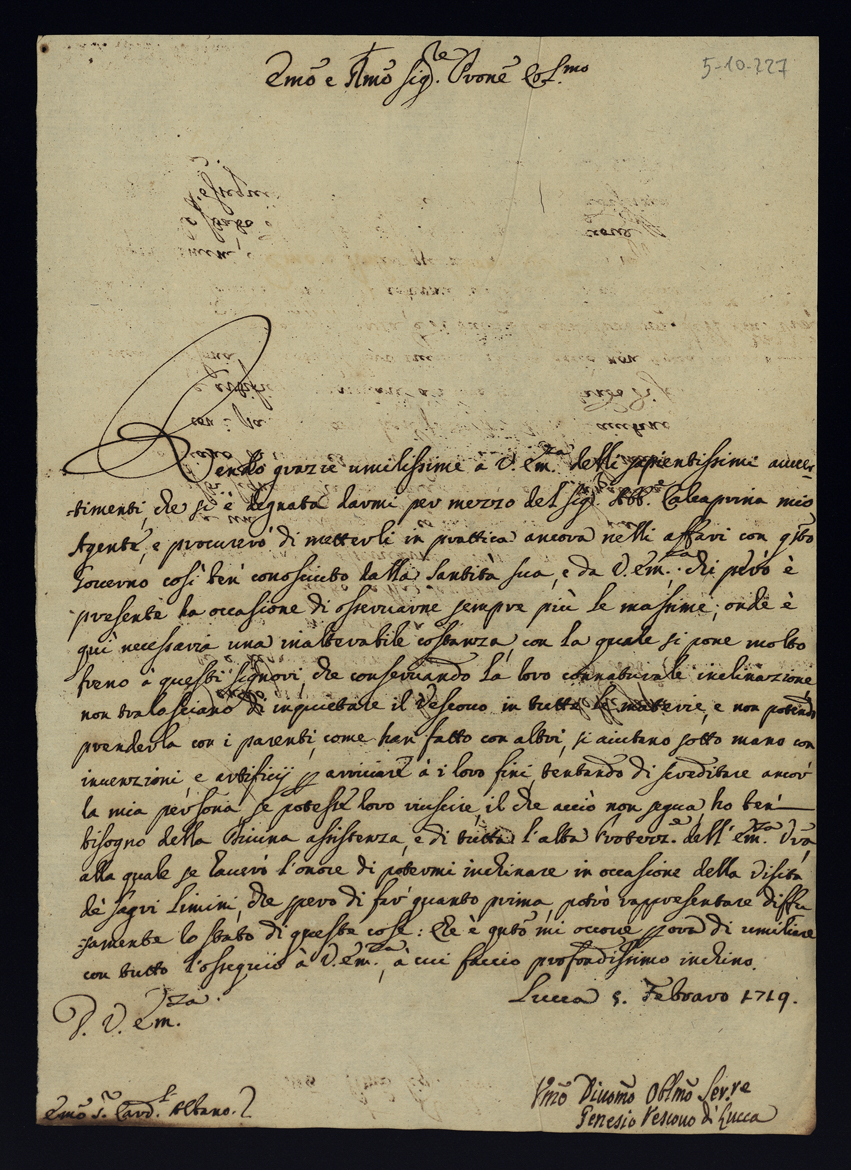 Emõ e Rmõ Sig.re Prone Col.mo
5-10-227
Rendo grazie umilissime à V. Em.za delli sapientissimi avver-
-timenti, che si è degnata darmi per mezzo del Sig.e Abb.e Calcaprina mio
Agente, e procurerò di metterli in prattica ancora nelli affari con qsto
Governo così ben' conosciuto dalla Santità sua, e da V. Em.za, chi però è
presente ha occasione di osservarne sempre più le massime; onde è
quì necessaria una inalterabile costanza, con la quale si pone molto
freno à questi Signori, che conservando la loro connaturale inclinazione
non tralasciano di inquietare il Vescovo in tutte le matterie, e non potendo
prenderla con i parenti, come han' fatto con altri, si aiutano sotto mano con
invenzioni, e artificij p arrivare à i loro fini, tentando di screditare ancor'
la mia persona, se potesse loro riuscire, il che acciò non segua, ho ben'
bisogno della Divina assistenza, e di tutta l'alta Protezz.e dell' Em.za Vra
alla quale se haverò l'onore di potermi inchinare in occasione della Visita
de' sagri Limini, che spero di far' quanto prima, potrò rappresentare diffu
-samente lo stato di queste cose: Che è qnto mi occorre p ora di umiliare
con tutto l'ossequio à V. Em.za, à cui faccio profondissimo inchino.
Lucca 5. Febraro 1719.
D. V. Em.za
Emõ S.re Card.l Albano.
Vmõ Diuomõ Oblmõ Ser.re
Genesio Vescovo di Lucca